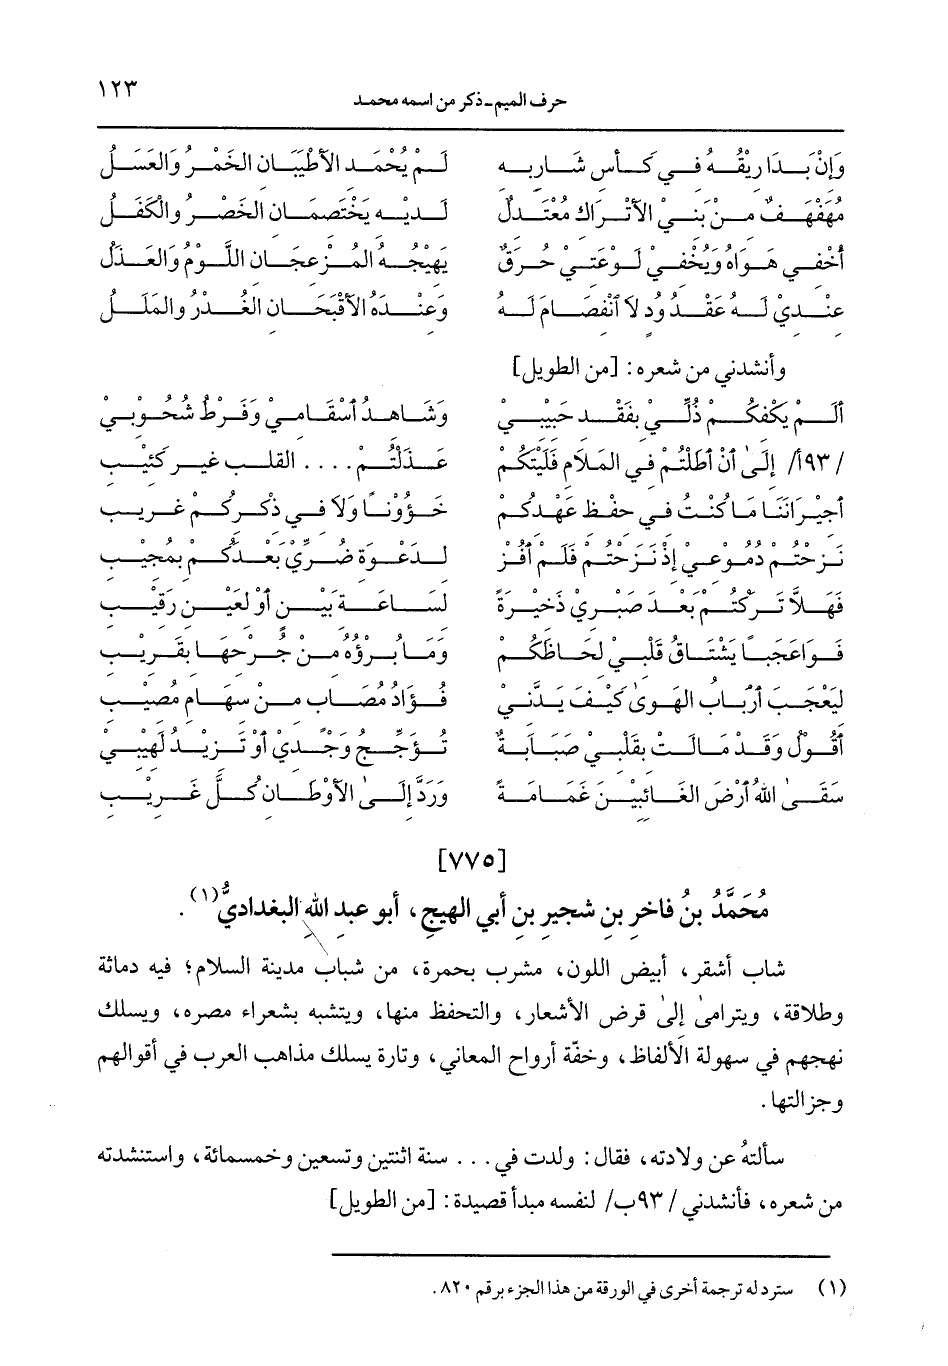 حرف الميم ـ ذكر من اسمه محمد ١٢٣
وَإِنْ بَدَا رِيْقُهُ فِي كَأْسِ شَارِبِهِ لَمْ يُحْمَدِ الأَطْيَبَانِ الخَمْرُ وَالعَسَلُ
مُهَفْهَفٌ مِنْ بَنِيْ الأَتْرَاكِ مُعْتَدِلٌ لَدَيْهِ يَخْتَصِمَانِ الخَصْرُ وَالْكَفَلُ
أُخْفِي هَوَاهُ وَيُخْفِي لَوْعَتِي حُرَقٌ يَهِيْجُهُ المُزْعِجَانِ اللَّوْمُ وَالعَذَلُ
عِنْدِيْ لَهُ عَقْدُ وُدٍّ لاَ اَنْفِصَامَ لَهُ وَعِنْدَهُ الأَقْبَحَانِ الغَدْرُ والمَلَلُ
وأنشدني من شعره: [من الطويل]
أَلَمْ يَكْفِكُمْ ذُلِّيْ بِفَقْدِ حَبِيْبِيْ وَشَاهِدُ أَسْقَامِيْ وَفَرْطُ شُحُوْبِيْ
/٩٣أ/ إِلَىٰ أَنْ أَطَلْتُمْ فِي المَلاَمِ فَلَيْتَكُمْ عَذَلْتُمْ .... القلب غير كئيب
أَجِيْرَانَنَا مَا كُنْتُ فِي حِفْظِ عَهْدِكُمْ خَؤُوْنَاً وَلاَ فِي ذِكْرِكُمْ غَرِيْبِ
نَزَحْتُمْ دُمُوْعِي إِذْ نَزَحْتُمْ فَلَمْ أَفُزْ لِدَعْوَةِ ضُرِّي بَعْدَكُمْ بِمُجِيْبِ
فَهَلاَّ تَرَكْتُمْ بَعْدَ صَبْرِيْ ذَخِيْرَةً لِسَاعَةِ بَيْنٍ أَوْ لِعَيْنِ رَقِيْبِ
فَوَاعَجَبَاً يَشْتَاقُ قَلْبِيْ لِحَاظَكُمْ وَمَا بُرْؤُهُ مِنْ جُرْحِهَا بِقَرِيْبِ
لِيَعْجَبَ أَرْبَابُ الهَوَىٰ كَيْفَ يَدَّنِيْ فُؤَادُ مُصَابٍ مِنْ سِهَامِ مُصِيْبِ
أَقُوْلُ وَقَدْ مَالَتْ بِقَلْبِيْ صَبَابَةٌ تُؤَجِّجُ وَجْدِيْ أَوْ تَزِيْدُ لَهِيْبِيْ
سَقَىٰ اللهُ أَرْضَ الغَائِبِيْنَ غَمَامَةً وَرَدَّ إِلَىٰ الأَوْطَانِ كُلَّ غَرِيْبِ
[٧٧٥]
مُحَمَّدُ بنُ فاخرِ بنِ شجيرِ بنِ أبي الهيجِ، أبو عبدِ اللهِ البغداديُّ(١).
شاب أشقر، أبيض اللون، مشرب بحمرة، من شباب مدينة السلام؛ فيه دماثة
وطلاقة، ويترامىٰ إلىٰ قرض الأشعار، والتحفظ منها، ويتشبه بشعراء مصره، ويسلك
نهجهم في سهولة الألفاظ، وخفّة أرواح المعاني، وتارة يسلك مذاهب العرب في أقوالهم
وجزالتها.
سألتهُ عن ولادته، فقال: ولدت في ... سنة اثنتين وتسعين وخمسمائة، واستنشدته
من شعره، فأنشدني /٩٣ب/ لنفسه مبدأ قصيدة: [من الطويل]
(١) سترد له ترجمة أخرى في الورقة من هذا الجزء برقم ٨٢٠.